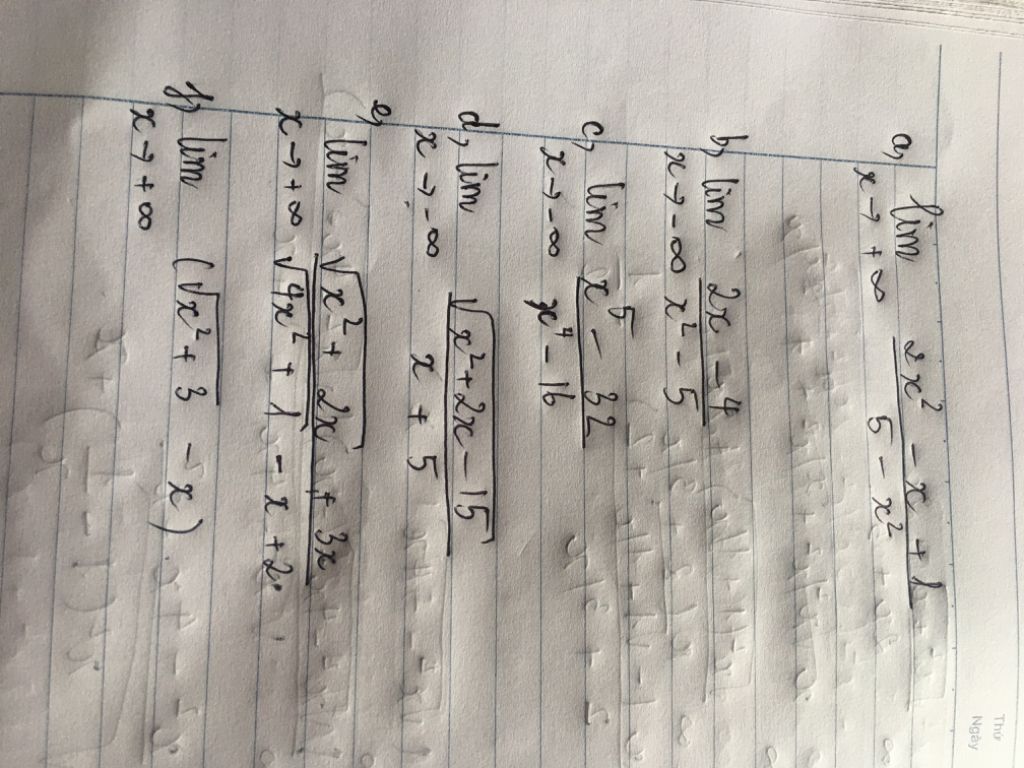 Thứ
Ngày
a, lim 2x² - x + 1
x → +∞ 5 - x²
b, lim 2x - 4
x → -∞ x² - 5
c, lim x⁵ - 32
x → -∞ x⁴ - 16
d, lim √(x² + 2x - 15)
x → -∞ x + 5
e, lim √(x² + 2x) + 3x
x → +∞ √(4x² + 1) - x + 2
f, lim (√(x² + 3) - x)
x → +∞